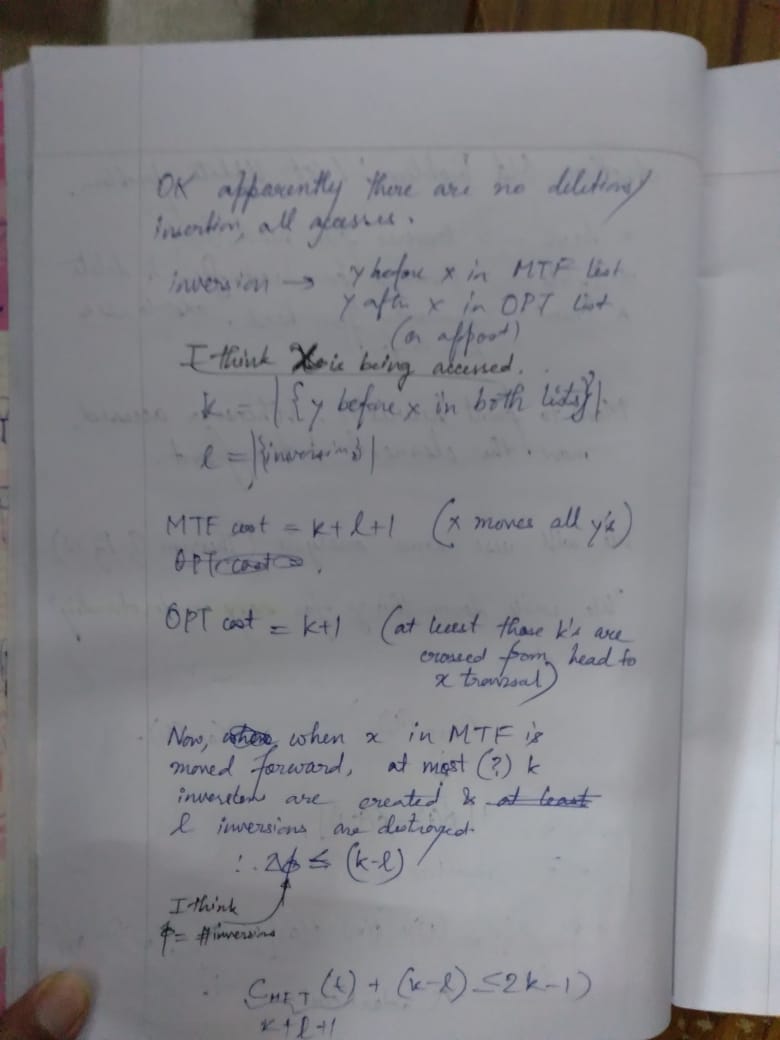 OK apparently there are no deletions/
insertion, all accesses.
inversion → y before x in MTF list
y after x in OPT list
(or appost)
I think X is being accessed.
k = |{y before x in both lists}|.
l = |{inversions}|
MTF cost = k+l+1 (x moves all y's)
OPT cost =
OPT cost = k+1 (at least those k's are
crossed from head to
x traversal)
Now, when when x in MTF is
moved forward, at most (?) k
inversions are created & at least
l inversions are destroyed.
∴ Δϕ ≤ (k-l)
I think
ϕ = #inversions
∴ C (t) + (k-l) ≤ 2k-1)
k+l+1